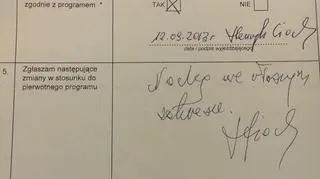 zgodnie z programem *
TAK
NIE
12.09.2013r Henryk Cioch
data i podpis wyjeżdżającego
5.
Zgłaszam następujące
zmiany w stosunku do
pierwotnego programu
Nocleg we własnym
zakresie.
HCioch